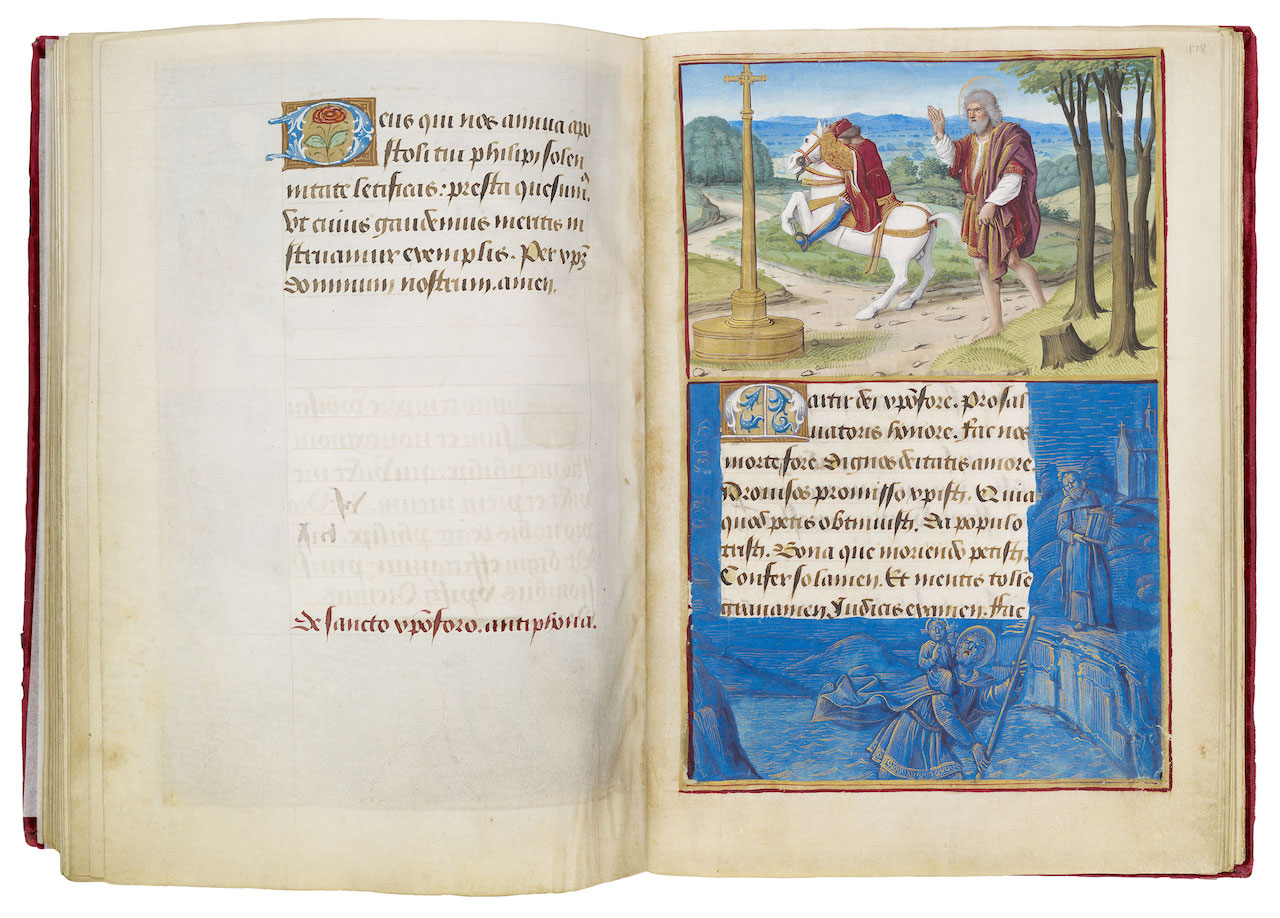 Deus qui nos annua apo
stoli tui philipi solen
nitate letificas: presta quesumꝰ.
Ut cuius gaudemus meritis in
struamur exemplis. Per xpȝ
dominum nostrum. amen.
De sancto xpõforo. antiphona.
178
Martir dei xpõfore. Pro sal
uatoris honore. Fac nos
mente fore Dignos deitatis amore.
Promisso xpisti. Quia
quod petis obtinuisti. Da populo
tristi. Bona que moriendo petisti.
Confer solamen. Et mentis tolle
grauamen Judicis examen. Fac